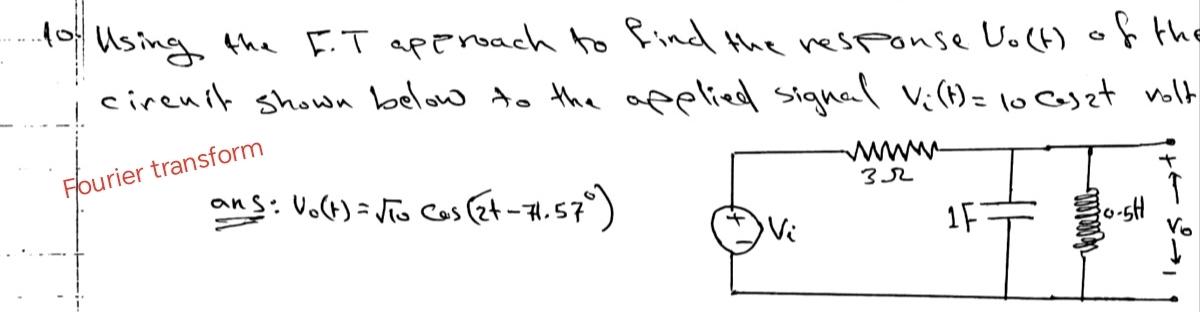 10. Using the F.T approach to find the response Vo(t) of the
circuit shown below to the applied signal Vi(t) = 10 cos2t volt
Fourier transform
ans: Vo(t) = √10 Cos (2t - 71.57°)
3Ω
Vi
1F
0.5H
+
Vo
-